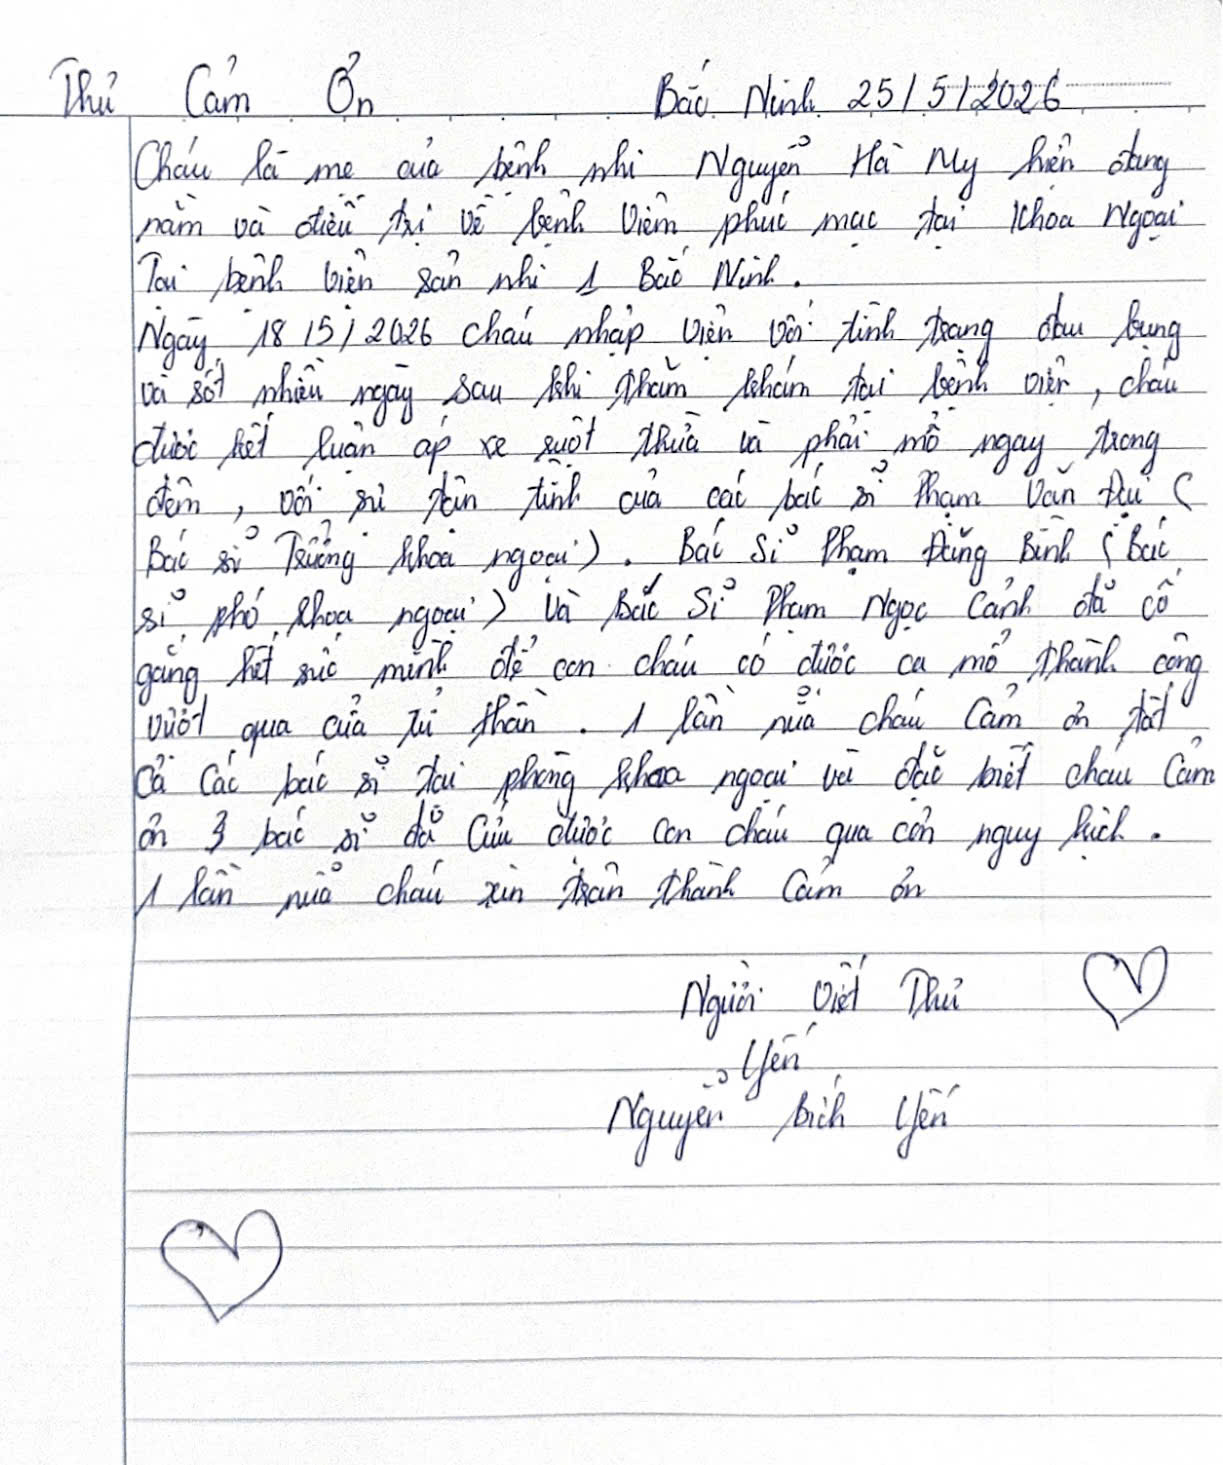 Thư Cảm Ơn Bắc Ninh 25/5/2026
Cháu là mẹ của bệnh nhi Nguyễn Hà My hiện đang
nằm và điều trị về bệnh Viêm phúc mạc tại Khoa Ngoại
Tại bệnh viện sản nhi 1 Bắc Ninh.
Ngày 18/5/2026 cháu nhập viện với tình trạng đau bụng
và sốt nhiều ngày sau khi thăm khám tại bệnh viện, cháu
được kết luận áp xe ruột thừa và phải mổ ngay trong
đêm, với sự tận tình của các bác sĩ Phạm Văn Đại (
Bác sĩ Trưởng khoa ngoại). Bác Sĩ Phạm Đăng Bình (Bác
sĩ phó khoa ngoại) Và Bác Sĩ Phạm Ngọc Cảnh đã cố
gắng hết sức mình để con cháu có được ca mổ thành công
vượt qua cửa tử thần. 1 lần nữa cháu Cảm ơn tất
Cả Các bác sĩ tại phòng khoa ngoại và đặc biệt cháu Cảm
ơn 3 bác sĩ đã Cứu được Con cháu qua cơn nguy kịch.
1 lần nữa cháu xin trân thành Cảm ơn
Người Viết Thư
Yến
Nguyễn Bích Yến